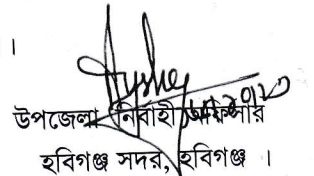 ।
উপজেলা নির্বাহী অফিসার
হবিগঞ্জ সদর, হবিগঞ্জ ।